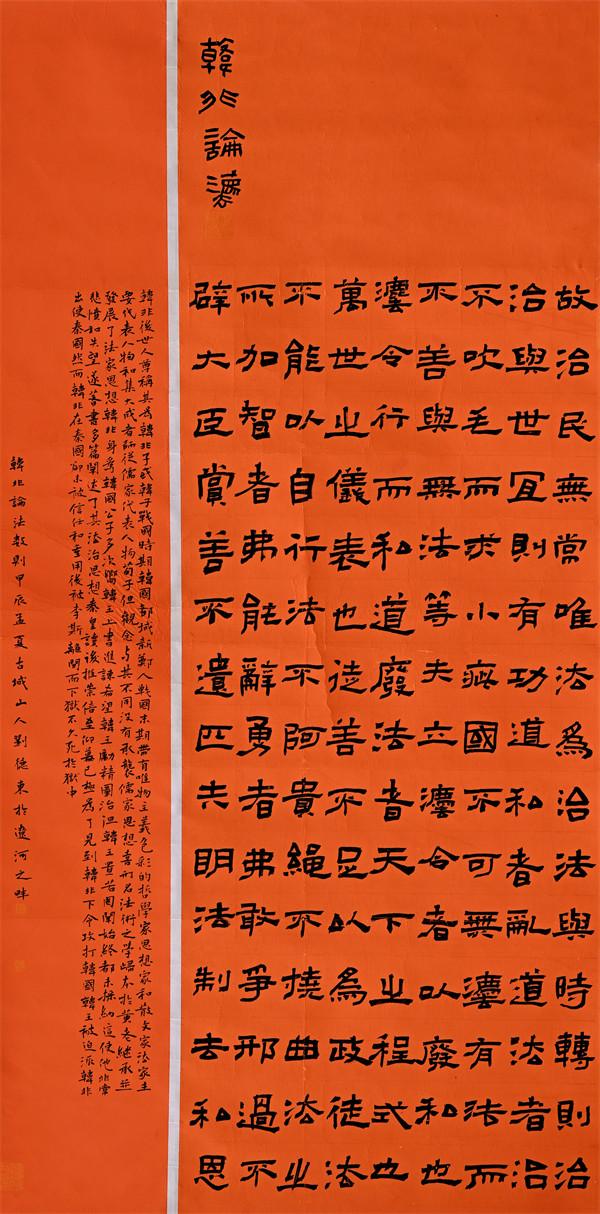 韓非論灋
故治民無常唯法為治法與時轉則治
治與世宜則有功道私者亂道法者治
不吹毛而求小疵國不可無灋有法而
不善與無法等夫立灋令者以廢私也
灋令行而私道廢法者天下之程式也
萬世之儀表也徒善不足以為政徒法
不能以自行法不阿貴繩不撓曲法之
所加智者弗能辭勇者弗敢爭刑過不
辟大臣賞善不遺匹夫明法制去私恩
韓非後世人尊稱其為韓非子或韓子戰國時期韓國都城新鄭人戰國末期帶有唯物主義色彩的哲學家思想家和散文家法家主
要代表人物和集大成者師從儒家代表人物荀子但觀念與其不同沒有承襲儒家思想喜刑名法術之學歸本於黃老繼承並
發展了法家思想韓非身為韓國公子多次嚮韓王上書進諫希望韓王勵精圖治但韓王置若罔聞始終都未採納這使他非常
悲憤和失望遂著書多篇闡述了其法治思想秦皇讀後推崇倍至仰慕已極為了見到韓非下令攻打韓國韓王被迫派韓非
出使秦國然而韓非在秦國卻未被信任和重用後被李斯離間而下獄不久死於獄中
韓非論法數則甲辰孟夏古城山人劉德東於遼河之畔